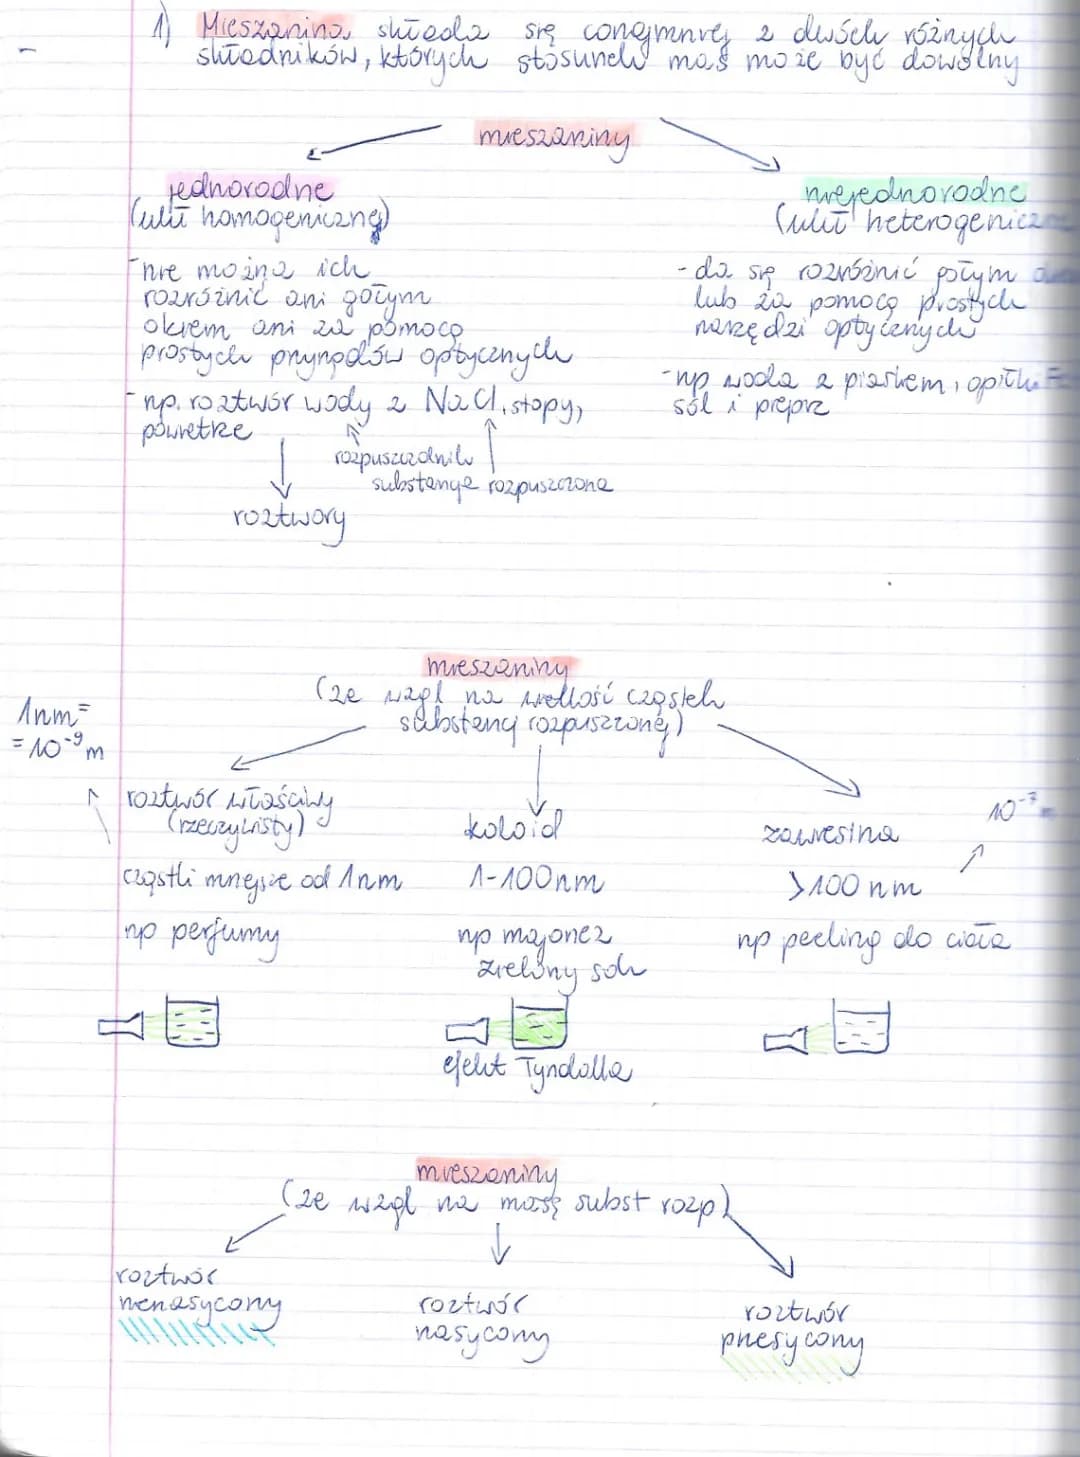 1) Mieszanina składa się conajmniej z dwóch różnych
składników, których stosunek mas może być dowolny
mieszaniny
jednorodne
(układ homogeniczny)
niejednorodne
(układ heterogenicz
- nie można ich
rozróżnić ani gołym
okiem ani za pomocą
prostych przyrządów optycznych
- np. roztwór wody z NaCl, stopy,
powietrze
rozpuszczalnik
substancja rozpuszczona
roztwory
- da się rozróżnić gołym
lub za pomocą prostych
narzędzi optycznych
- np woda z piaskiem, opiłki Fe
sól i pieprz
mieszaniny
(ze wzgl na wielkość cząstek
substancj rozpuszczonej)
1nm=
=10⁻⁹m
roztwór właściwy
(rzeczywisty)
cząstki mniejsze od 1nm
np perfumy
koloid
1-100nm
np majonez
zielony sok
efekt Tyndalla
zawiesina
>100 nm
10⁻⁷ m
np peeling do ciała
mieszaniny
(ze wzgl na masę subst rozp)
roztwór
nienasycony
roztwór
nasycony
roztwór
przesycony